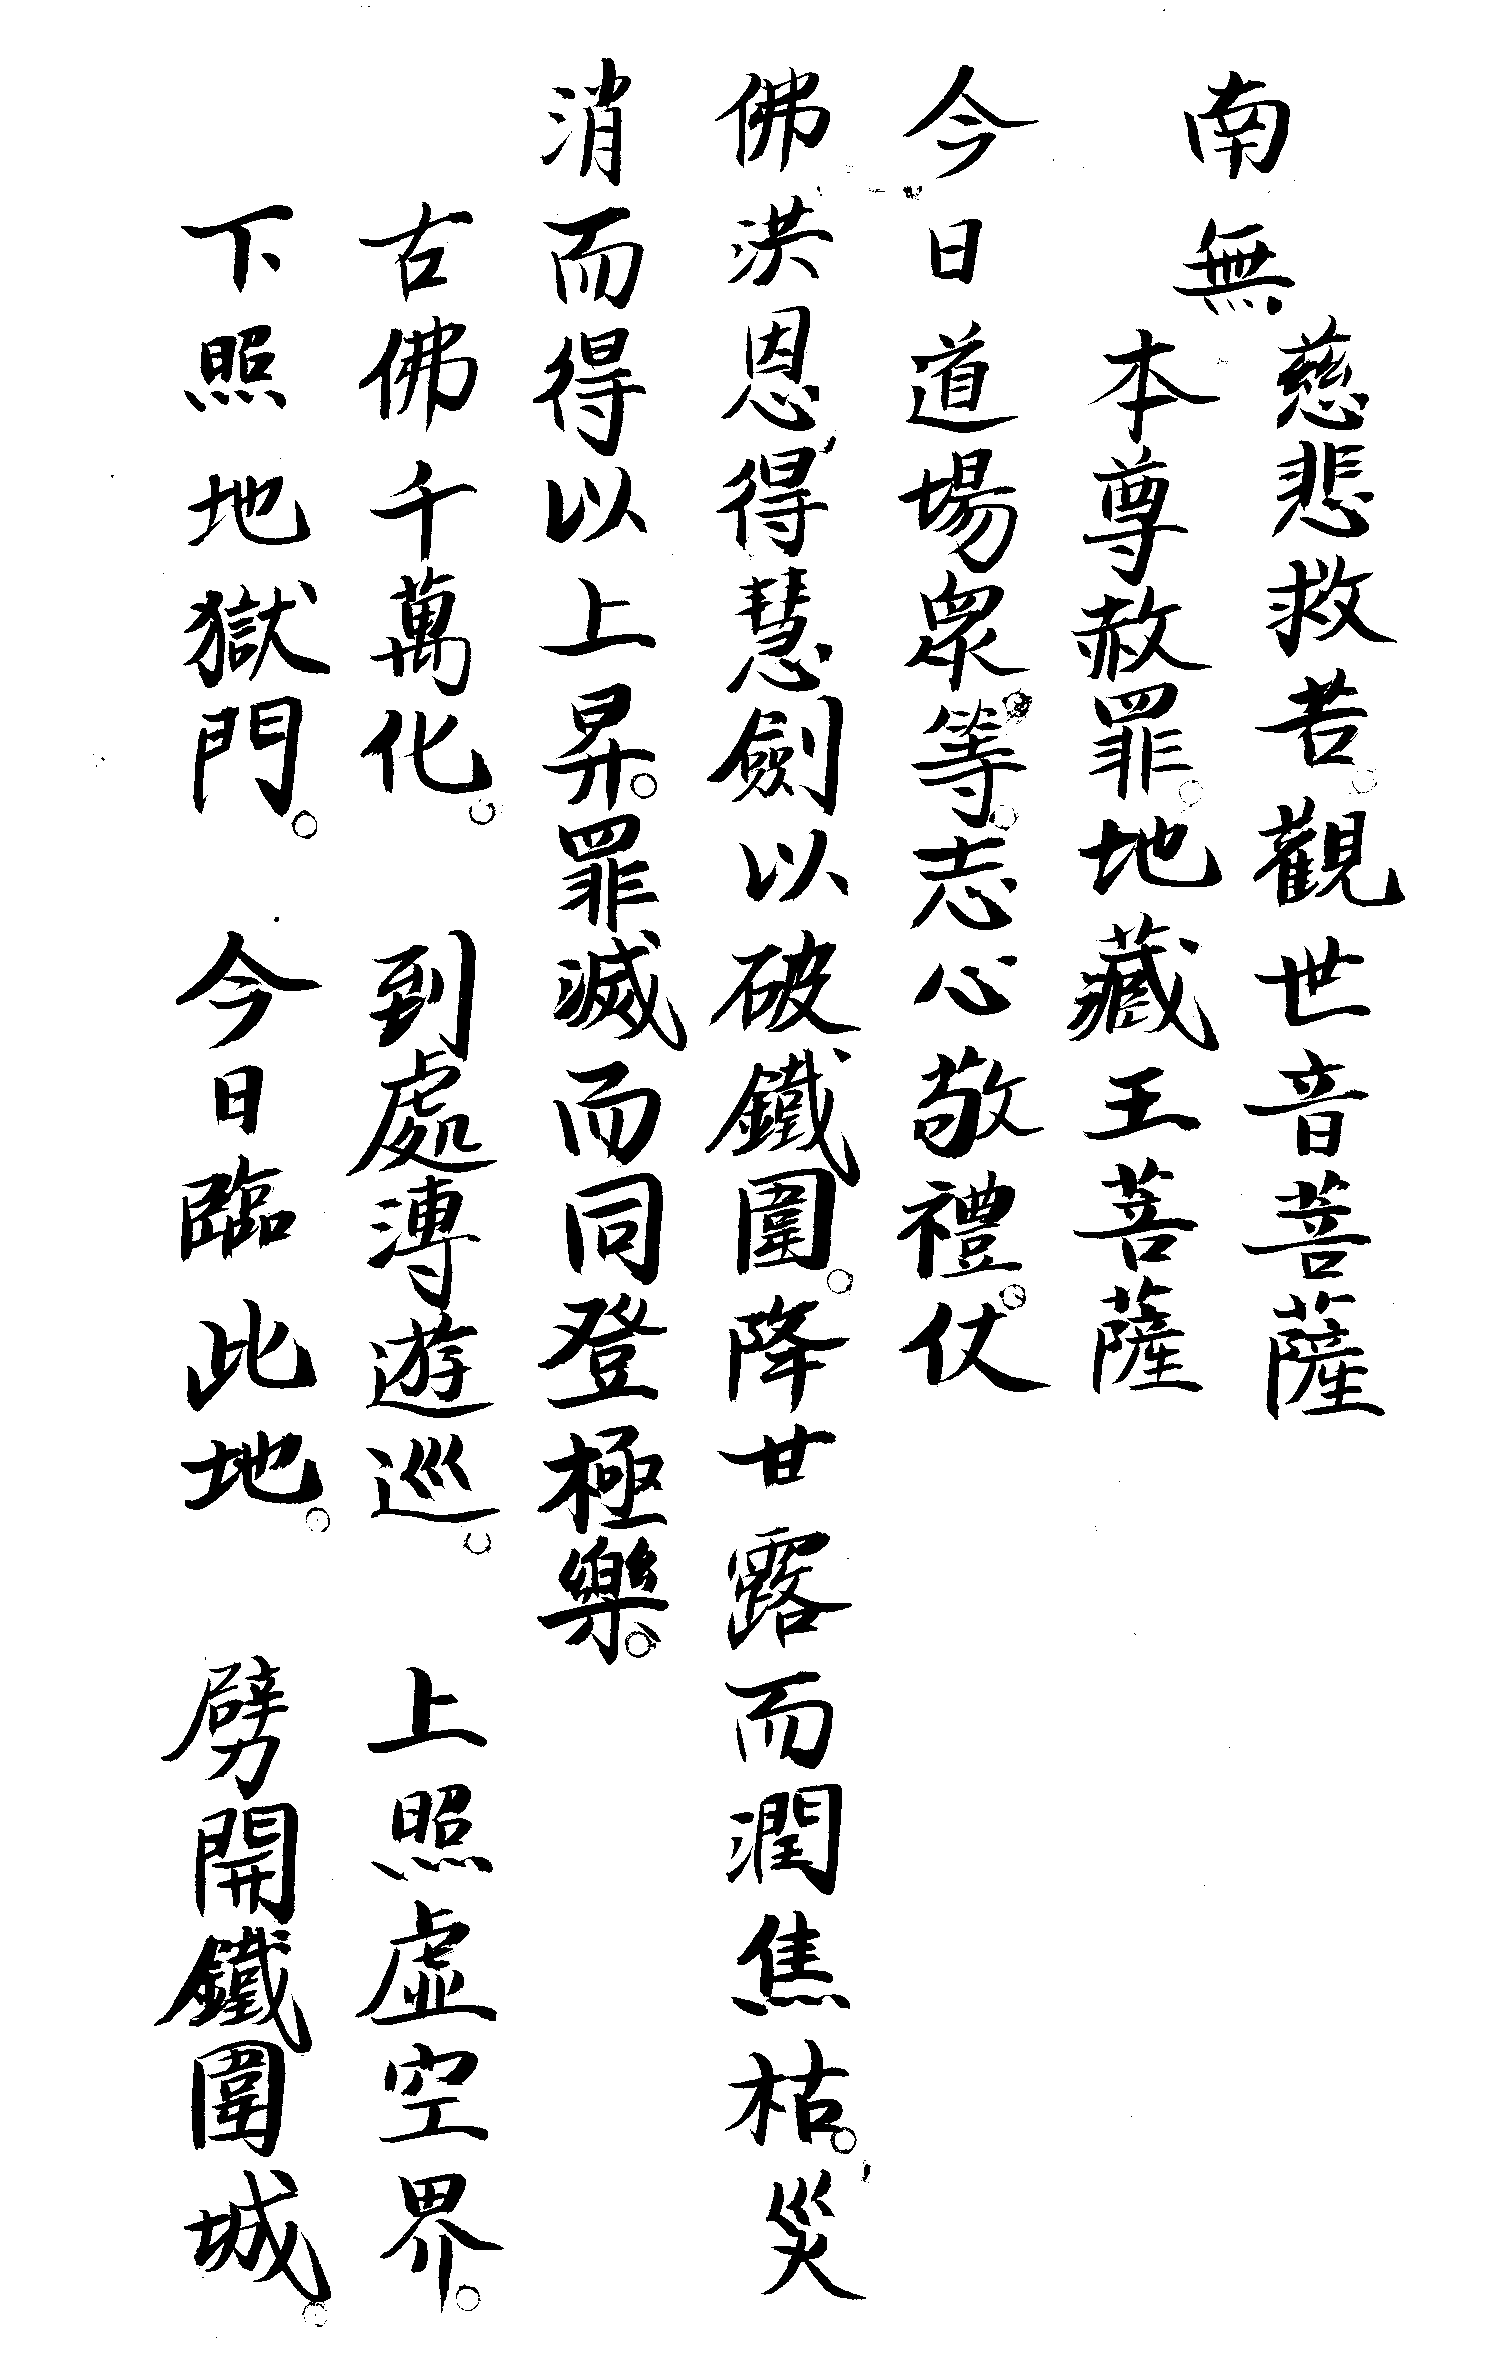 南無
慈悲救苦。觀世音菩薩
本尊赦罪。地藏王菩薩
今日道場眾等。志心敬禮。仗
佛洪恩得慧劍以破鐵圍。降甘露而潤焦枯。災
消而得以上昇。罪滅而同登極樂。
古佛千萬化。 到處溥遊巡。 上照虛空界。
下照地獄門。 今日臨此地。 劈開鐵圍城。